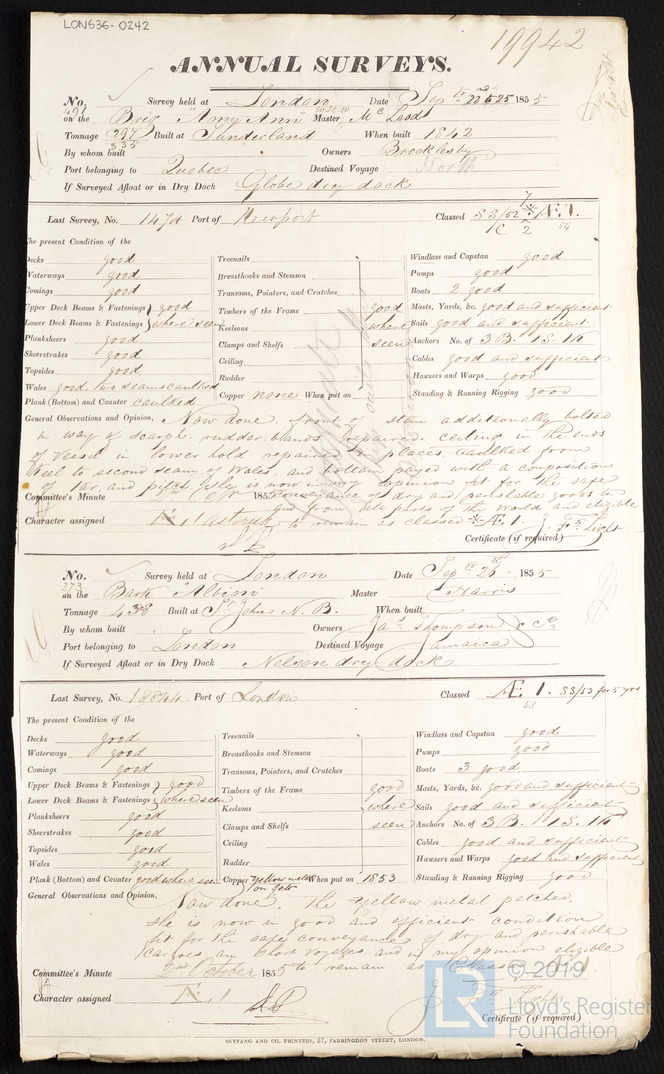 LON636-0242
19942
ANNUAL SURVEYS.
No. 491 Survey held at London Date Sep 1855
on the Brig "Amy Ann" Master McLeod
Tonnage 297 335 Built at Sunderland When built 1842
By whom built Owners Brocklesby
Port belonging to Quebec Destined Voyage North
If Surveyed Afloat or in Dry Dock Globe dry dock
Last Survey, No. 1474 Port of Newport Classed SS/52 Æ.1.
54
The present Condition of the
Decks good Treenails Windlass and Capstan good
Waterways good Breasthooks and Stemson Pumps good
Comings good Transoms, Pointers, and Crutches Boats 2 good
Upper Deck Beams & Fastenings good Timbers of the Frame good Masts, Yards, &c. good and sufficient
Lower Deck Beams & Fastenings where seen Keelsons where Sails good and sufficient
Planksheers good Clamps and Shelfs seen Anchors No. of 3 B. 1 S. 1 K
Sheerstrakes good Ceiling Cables good and sufficient
Topsides good Rudder Hawsers and Warps good
Wales good two seams caulked Copper none When put on Standing & Running Rigging good
Plank (Bottom) and Counter caulked
General Observations and Opinion, Now done. front of stem additionally bolted
in way of scarph. rudder bands repaired. ceiling in the ends
of vessel in lower hold repaired in places, caulked from
keel to second seam of Wales, and bottom payed with a composition
of tar and pitch, she is now in my opinion fit for the safe
Committee's Minute 1855 conveyance of dry and perishable goods to
and from all parts of the World and eligible
Character assigned to remain as classed Æ 1.
Certificate (if required)
No. 273 Survey held at London Date Sep 26 1855
on the Bark "Albion" Master Harris
Tonnage 438 Built at St Johns N. B. When built
By whom built Owners Jas Thompson & Co
Port belonging to London Destined Voyage Jamaica
If Surveyed Afloat or in Dry Dock Nelson dry dock
Last Survey, No. 18844 Port of London Classed Æ 1. SS/53 for 5 yrs
53
The present Condition of the
Decks good Treenails Windlass and Capstan good
Waterways good Breasthooks and Stemson Pumps good
Comings good Transoms, Pointers, and Crutches Boats 3 good
Upper Deck Beams & Fastenings good Timbers of the Frame good Masts, Yards, &c. good and sufficient
Lower Deck Beams & Fastenings where seen Keelsons where Sails good and sufficient
Planksheers good Clamps and Shelfs seen Anchors No. of 3 B. 1 S. 1 K
Sheerstrakes good Ceiling Cables good and sufficient
Topsides good Rudder Hawsers and Warps good and sufficient
Wales good Copper Yellow metal When put on 1853 Standing & Running Rigging good
Plank (Bottom) and Counter good where seen
General Observations and Opinion, Now done. The yellow metal patched.
she is now in good and efficient condition
fit for the safe conveyance of dry and perishable
cargoes on short voyages and in my opinion eligible
Committee's Minute 2nd October 1855 to remain as Classed
Character assigned Æ 1
Certificate (if required)
SEYFANG AND CO. PRINTERS, 57, FARRINGDON STREET, LONDON.
LR © 2019
Lloyd's Register
Foundation